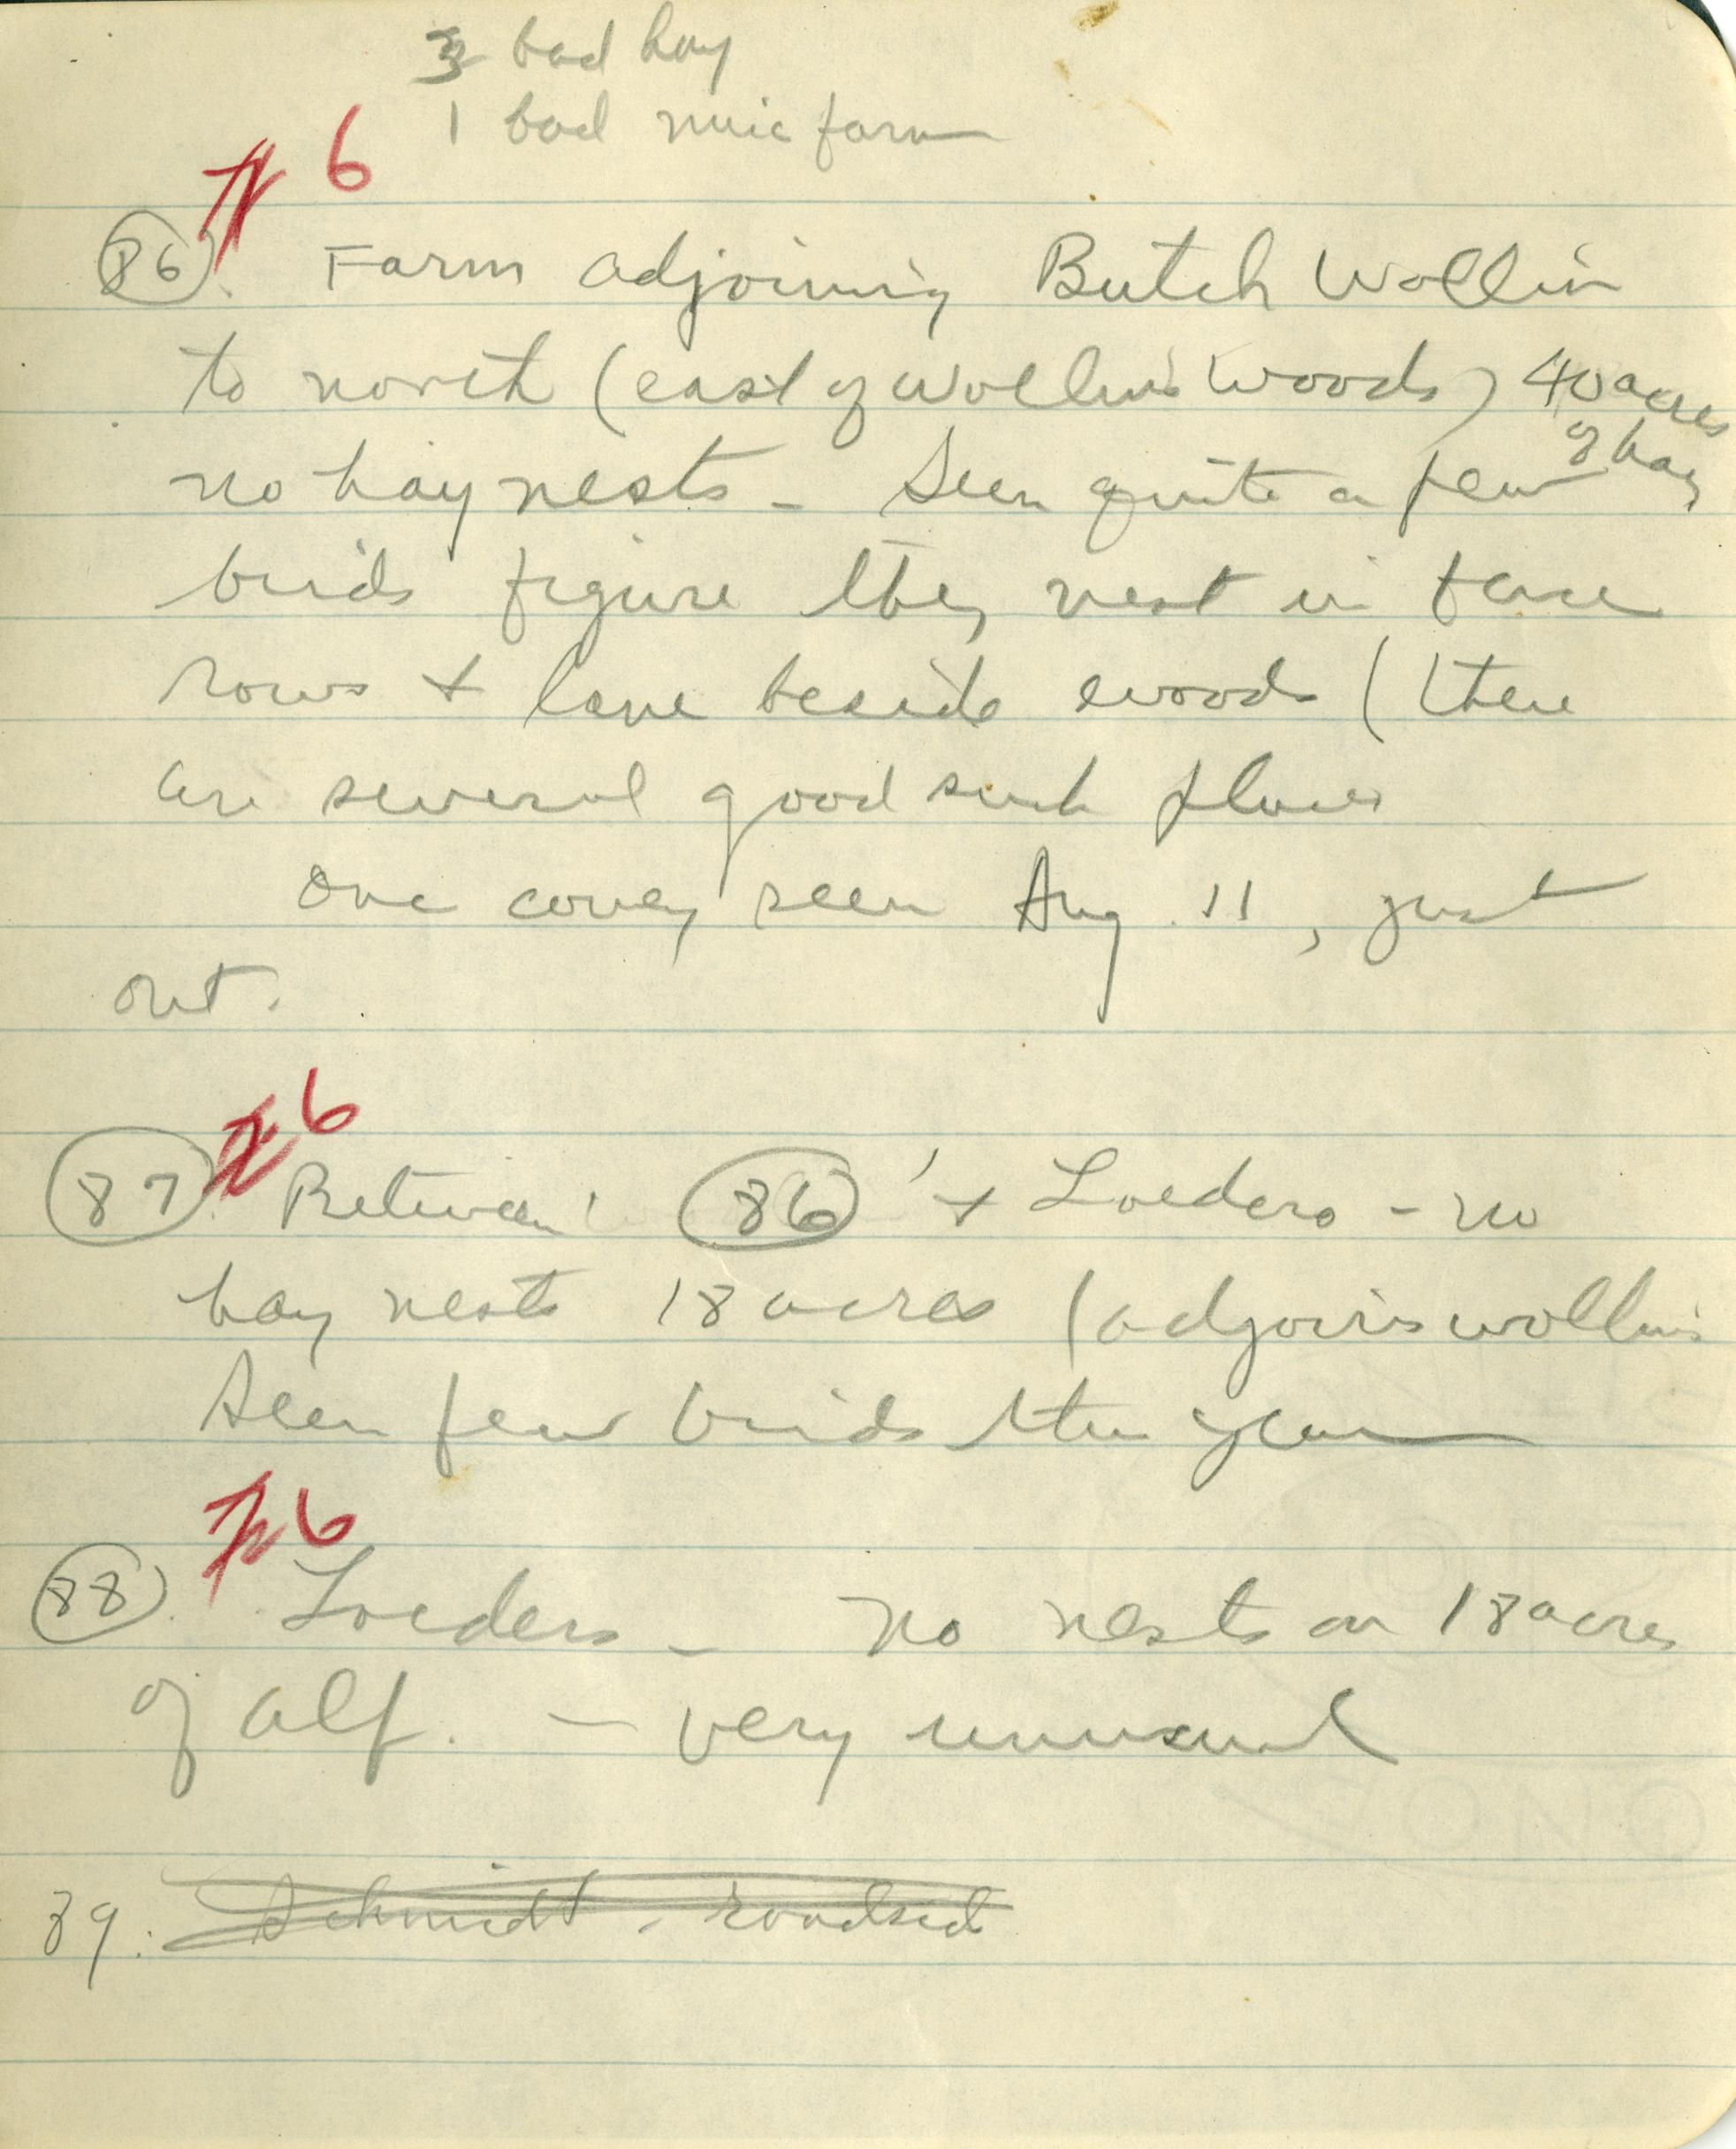 3 bad hay
1 bad farm
6
86. Farm adjoining Butch Wollin
to north (east of Wollin's Woods) 40 acres
of hay
no hay nests - Seen quite a few
birds figure they nest in fence
rows + lane beside woods (there
are several good such places
One covey seen Aug 11, just
out.
6
87. Between 86 + Loeders - no
hay nests 18 acres (adjoins wollins
Seen few birds this year
6
88. Loeders - no nests on 18 acres
of alf. - very unusual
89. Schmidt - roadside